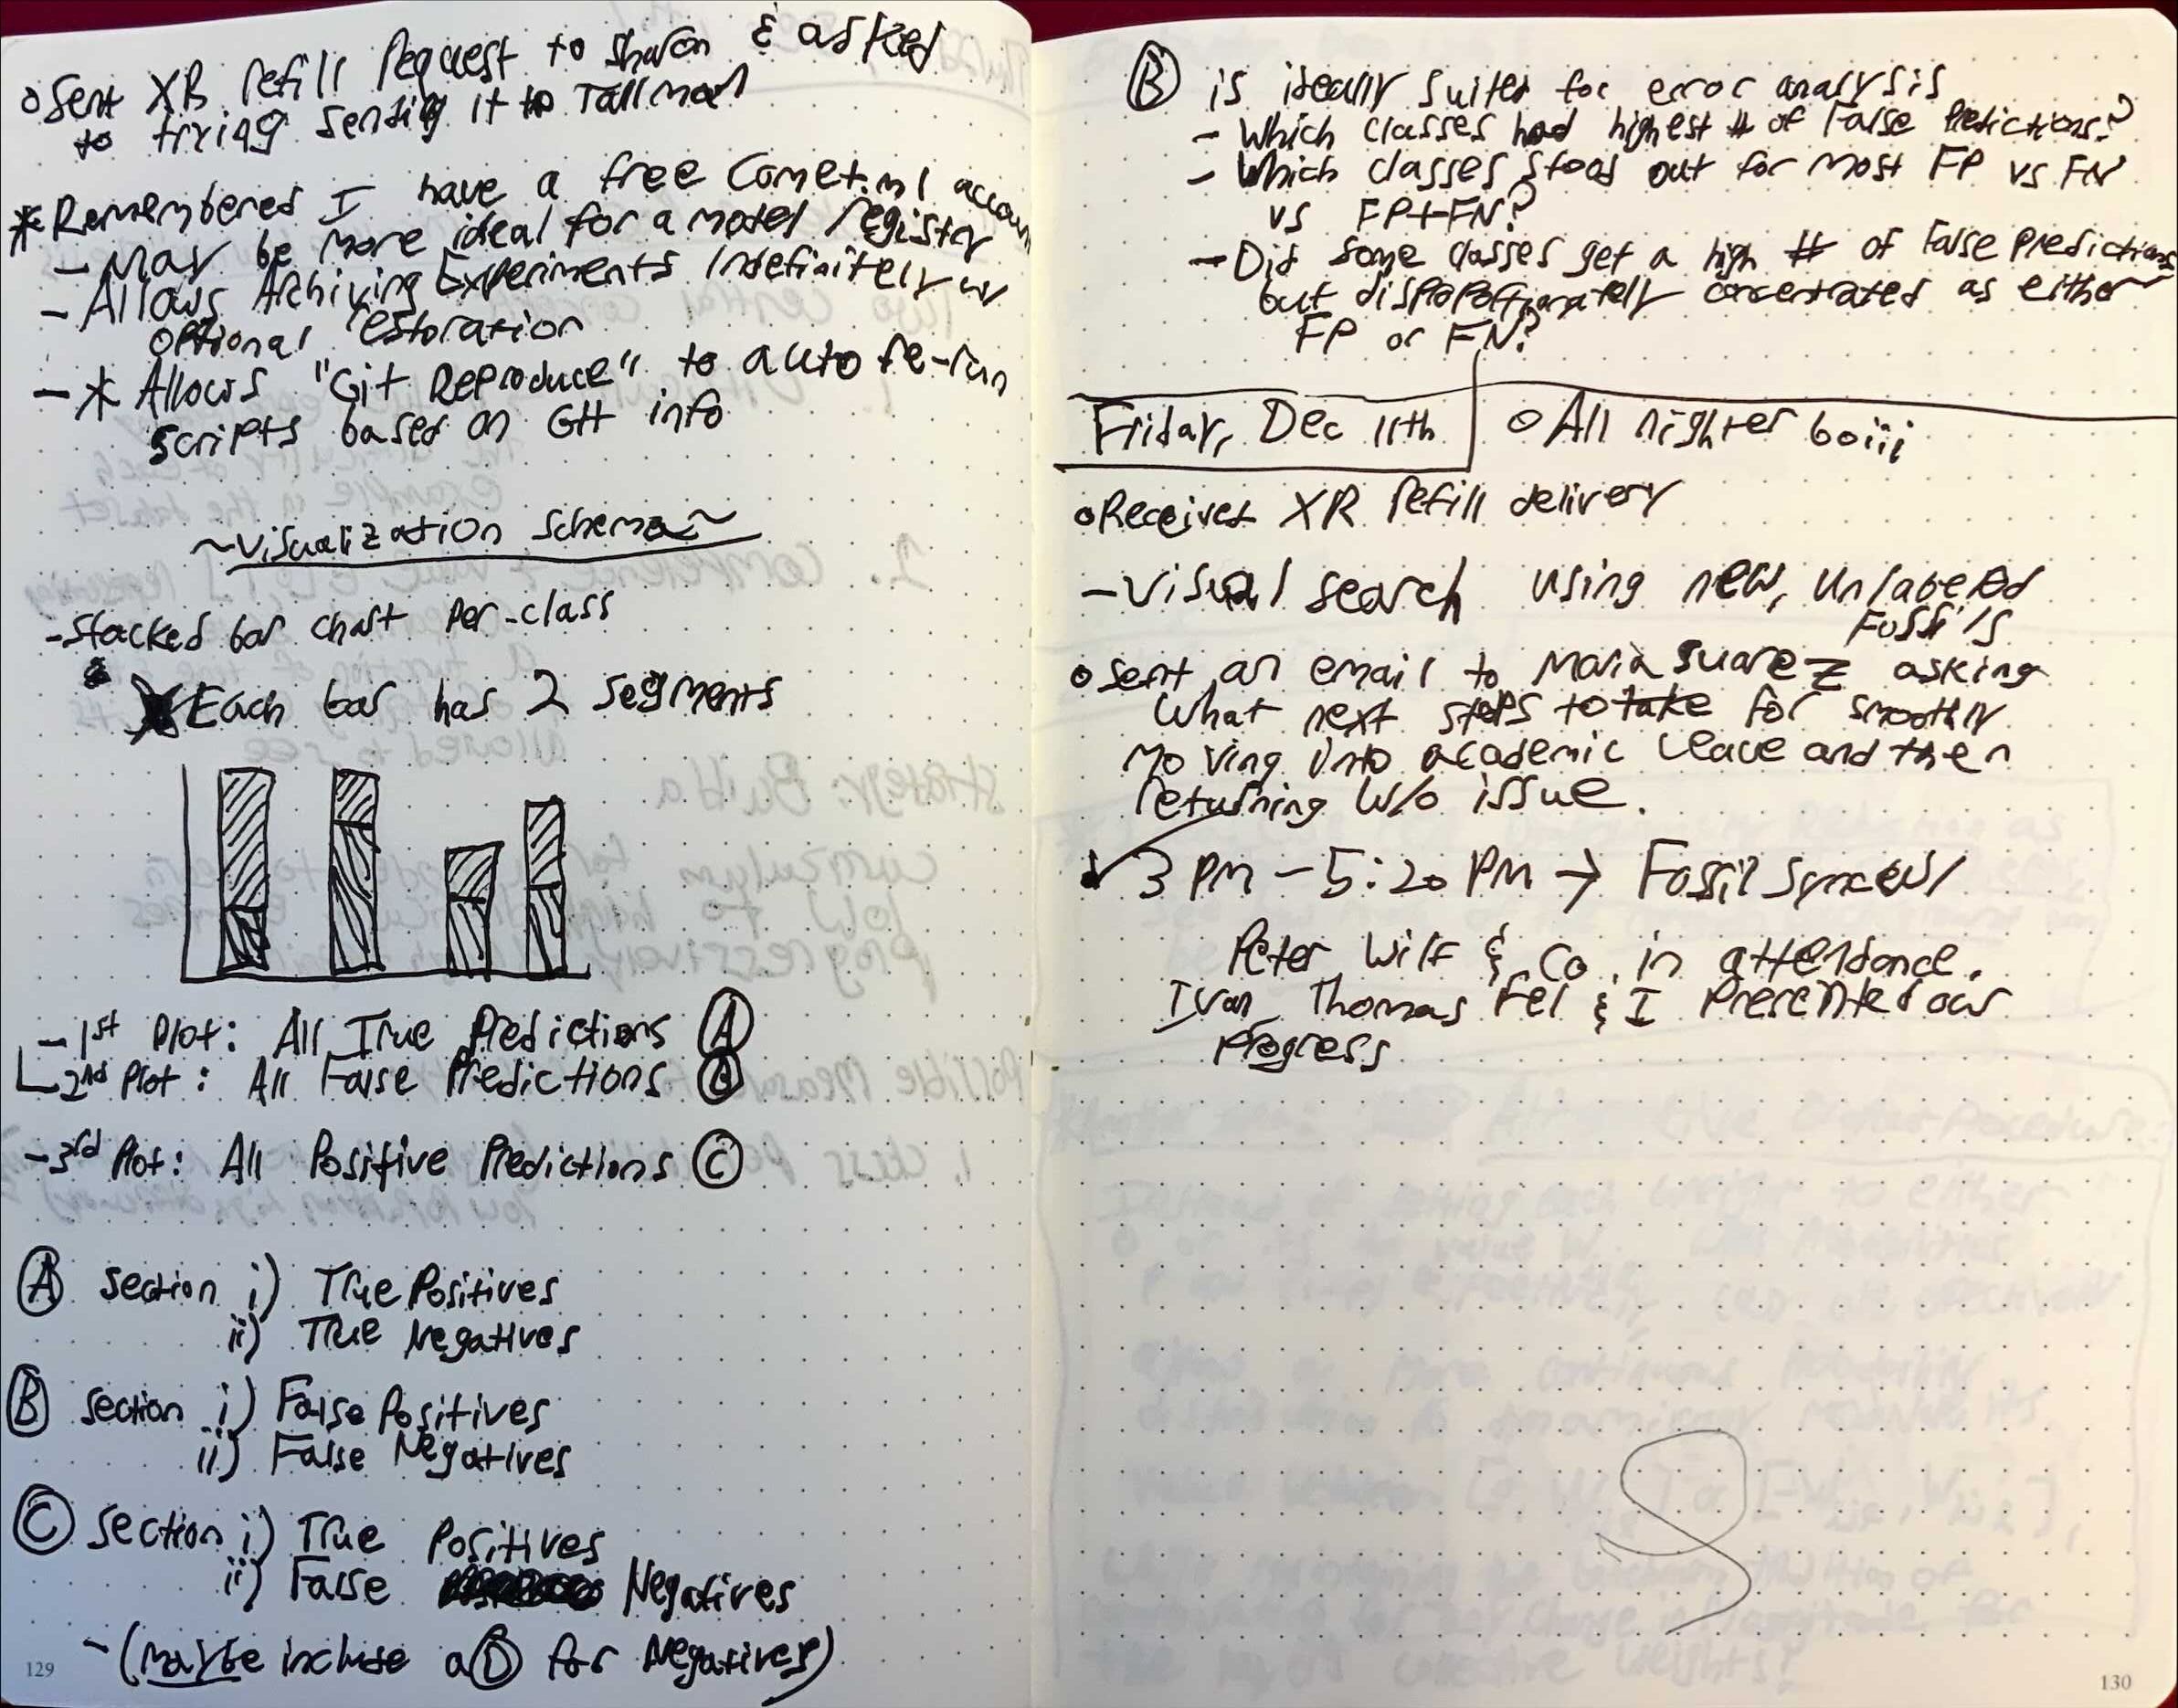 o Sent XR refill Request to Sharon & asked
to trying sending it to Tallman
* Remembered I have a free Comet.ml account
- May be more ideal for a model registry
- Allows Archiving Experiments Indefinitely w
optional restoration
- * Allows "Git Reproduce" to auto re-run
scripts based on GH info
~Visualization Schema~
- Stacked bar chart per-class
Each bar has 2 segments
- 1st Plot: All True Predictions (A)
2nd Plot: All False Predictions
- 3rd Plot: All Positive Predictions (C)
(A) section i) True Positives
ii) True Negatives
(B) section i) False Positives
ii) False Negatives
(C) section i) True Positives
ii) False Negatives
- (maybe include a (D) for Negatives)
129
(B) is ideally suited for error analysis
- Which classes had highest # of False Predictions?
- Which classes stood out for most FP vs FN
vs FP+FN?
- Did some classes get a high # of False predictions
but disproportionately concentrated as either
FP or FN?
Friday, Dec 11th o All nighter boiii
o Received XR refill delivery
- Visual search using new, unlabeled
Fossils
o Sent an email to Maria Suarez asking
What next steps to take for smoothly
moving into academic leave and then
returning w/o issue.
3 PM - 5:20 PM → Fossil Sync w/
Peter Wilf & Co. in attendance.
Ivan, Thomas Fel & I Presented our
Progress
130